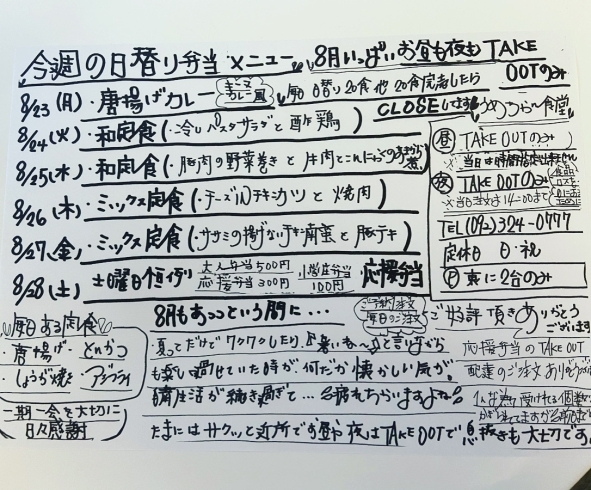 今週の日替り弁当 メニュー
8月いっぱいお昼も夜も TAKE OUTのみ
8/23(月)・唐揚げカレー
毎日 日替り20食 他20食完売したら
CLOSEします
8/24(火)・和定食(・冷しパスタサラダと酢鶏)
8/25(水)・和定食(・豚肉の野菜巻きと牛肉とこんにゃくの
8/26(木)・ミックス定食(・チーズINチキンカツと焼肉)
8/27(金)・ミックス定食(・ササミの揚げないチキン南蛮と豚テキ)
8/28(土) 土曜日恒例 大人弁当500円 応援弁当300円 小学生弁当100円 応援弁当
食堂
昼 TAKE OUTのみ
夜 TAKE OUTのみ
※当日注文は14-00まで
TEL(092)324-0777
定休日 日・祝
P 裏に2台のみ
毎日ある定食
・唐揚げ・とんかつ
・しょうが焼き・アジフライ
一期一会を大切に
日々感謝
8月もあっという間に…
ご予約注文
毎日のご注文
ご好評頂きありがとうございます
夏ってだけでワクワクしたり、暑いね〜と言いながら
過せていた時が何だか懐かしい気が。
生活が続き過ぎて…
疲れちゃいますよね
たまにはサクッと近所でお昼や夜はTAKE OUTで息抜きも大切です
応援弁当のTAKE OUT
配達のご注文ありがとう